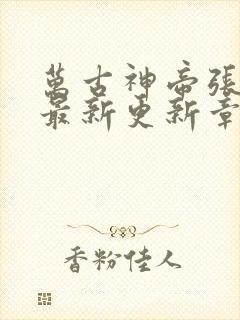 萬古神帝張
最新更新章
香粉佳人